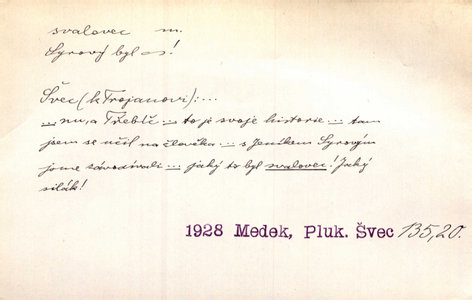 svalovec m.
Syrový byl s!
Švec (k Trojanovi): ...
... nu, a Třebíč ... to je svoje historie ... tam
jsem se učil na člověka ... s Jeníkem Syrovým
jsme závodívali ... jaký to byl svalovec! Jaký
silák!
1928 Medek, Pluk. Švec 135,20.